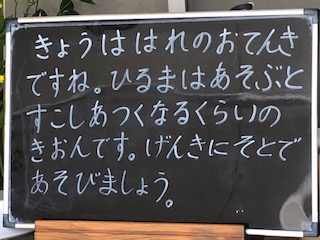 きょうははれのおてんき
ですね。ひるまはあそぶと
すこしあつくなるくらいの
きおんです。げんきにそとで
あそびましょう。